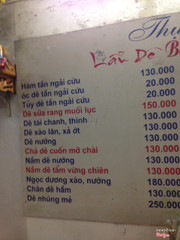 Thu
Lẩu Dê B
Hầm tần ngải cứu 130.000
Óc dê tần ngải cứu 20.000
Tủy dê tần ngải cứu 20.000
Dê sữa rang muối lục 150.000
Dê tái chanh, thính 130.000
Dê xào lăn, xả ớt 130.000
Dê nướng 130.000
Chả dê cuốn mỡ chài 130.000
Nầm dê nướng 130.000
Nầm dê tẩm vừng chiên 130.000
Ngọc dương xào, nướng 180.000
Chân dê hầm 130.000
Dê nhúng mẻ 250.000